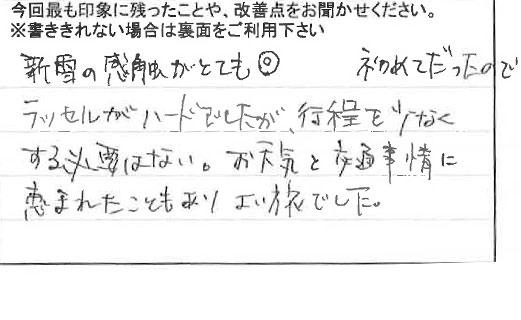 今回最も印象に残ったことや、改善点をお聞かせください。
※書ききれない場合は裏面をご利用下さい
新雪の感触がとても◎ 初めてだったので
ラッセルがハードでしたが、行程を少なく
する必要はない。お天気と交通事情に
恵まれたこともあり よい旅でした。